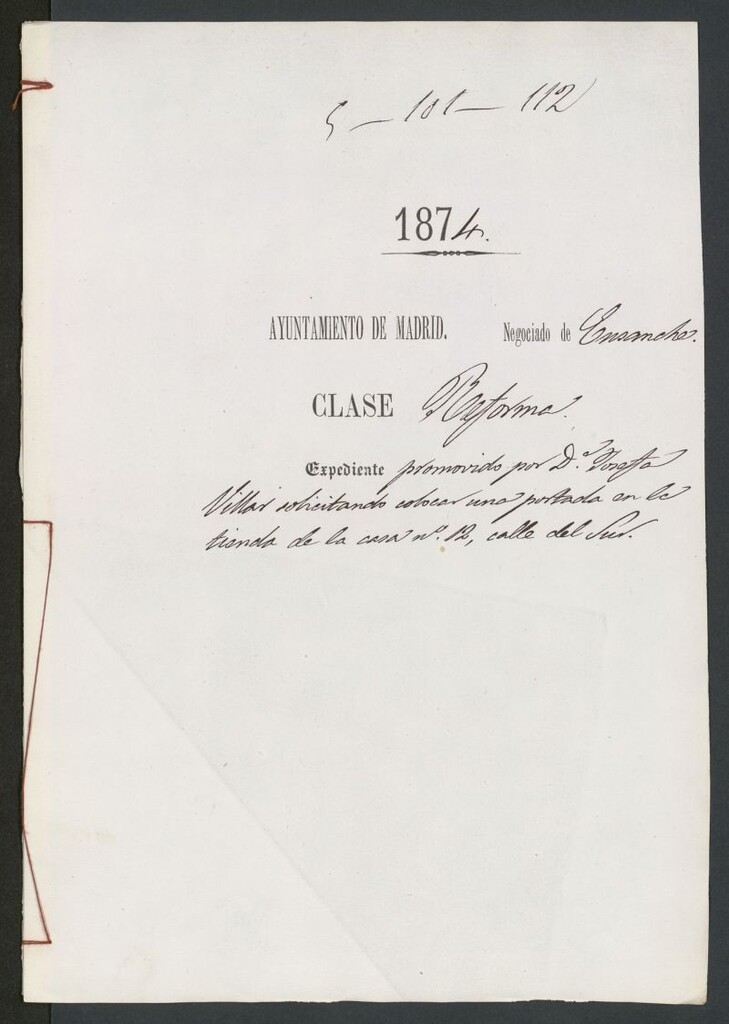 5 - 101 - 112
1874.
AYUNTAMIENTO DE MADRID. Negociado de Ensanche.
CLASE Reforma.
Expediente promovido por D.ª Josefa
Villar solicitando colocar una portada en la
tienda de la casa nº. 12, calle del Sur.